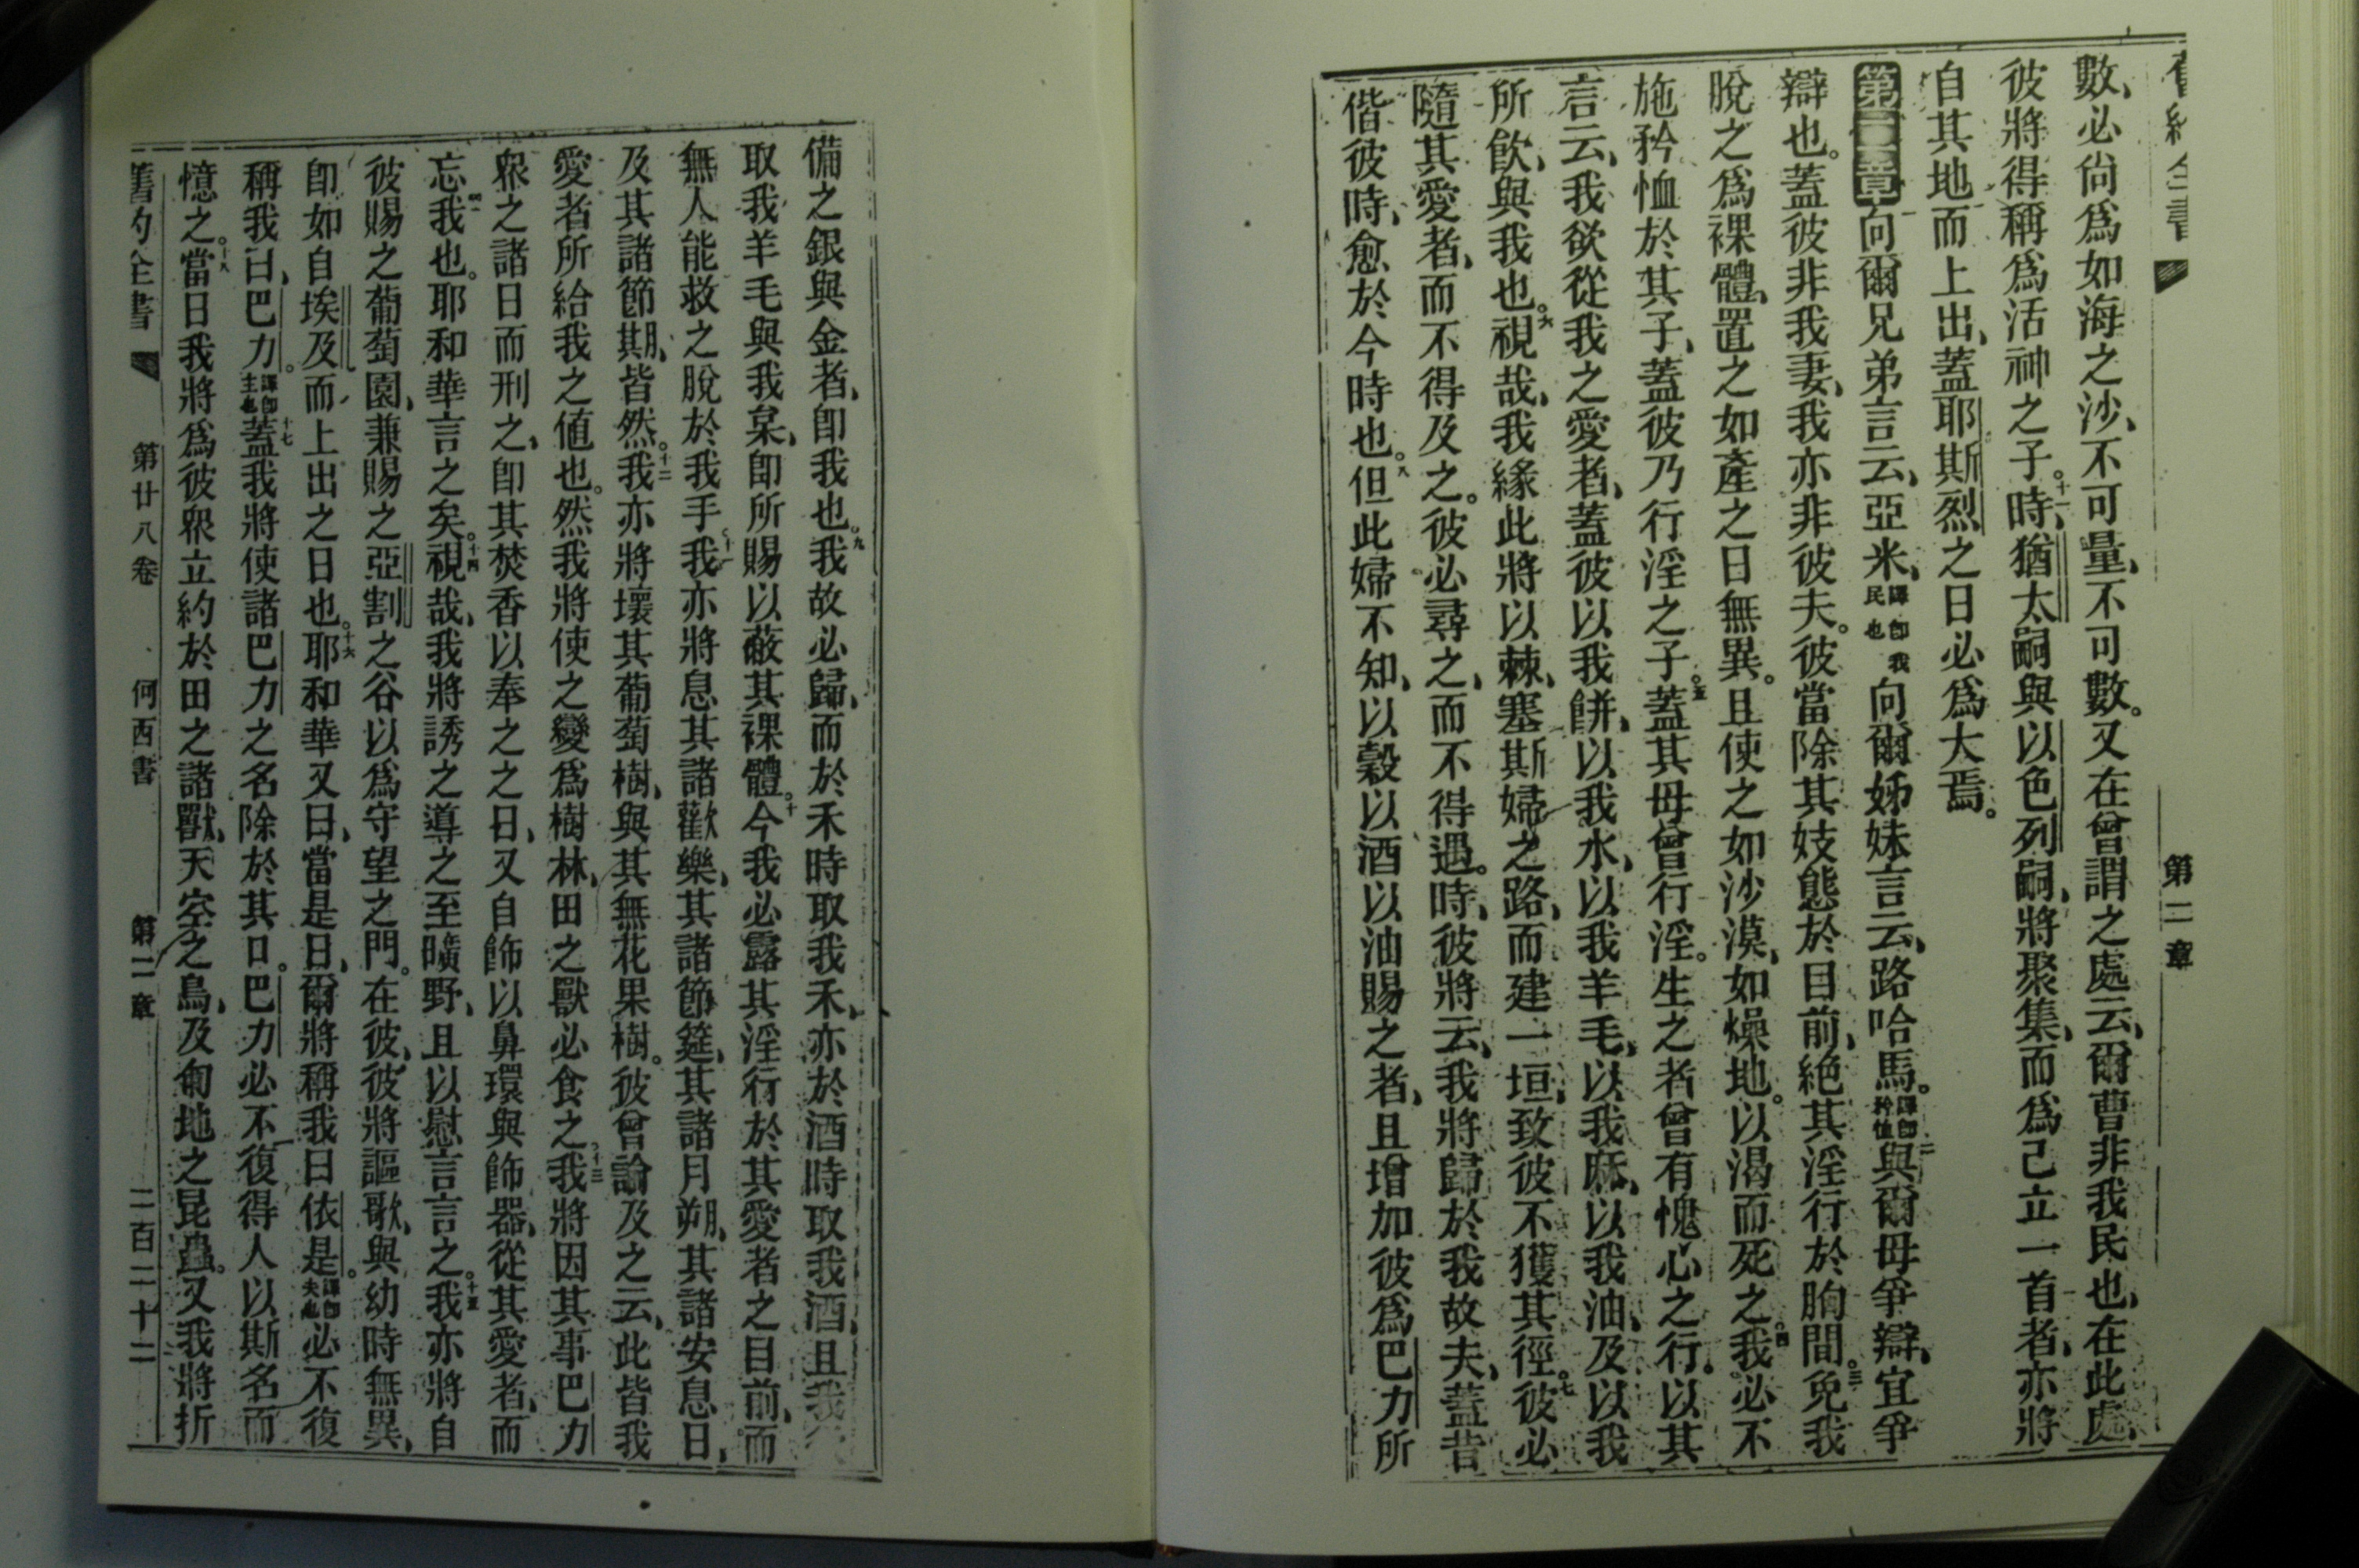 舊約全書
第二章
數、必尙爲如海之沙、不可量、不可數。又在曾謂之處云、爾曹非我民也、在此處、
彼將得稱爲活神之子。十一時、猶太嗣與以色列嗣、將聚集、而爲己立一首者、亦將
自其地而上出、蓋耶斯烈之日必爲大焉。
第二章向爾兄弟言云、亞米、譯卽我民也向爾姊妹言云、路哈馬。譯卽矜恤二與爾母爭辯、宜爭
辯也。蓋彼非我妻、我亦非彼夫。彼當除其妓態於目前、絕其淫行於胸間。三免我
脫之爲裸體、置之如產之日無異。且使之如沙漠、如燥地。以渴而死之。四我必不
施矜恤於其子、蓋彼乃行淫之子。五蓋其母曾行淫。生之者曾有愧心之行。以其
言云、我欲從我之愛者、蓋彼以我餅、以我水、以我羊毛、以我麻、以我油、及以我
所飲、與我也。六視哉、我緣此將以棘、塞斯婦之路、而建一垣、致彼不獲其徑。七彼必
隨其愛者、而不得及之。彼必尋之、而不得遇。時、彼將云、我將歸於我故夫、蓋昔
偕彼時、愈於今時也。八但此婦不知、以穀以酒以油賜之者、且增加彼爲巴力所
備之銀與金者、卽我也。九我故必歸、而於禾時取我禾、亦於酒時取我酒、且我
取我羊毛與我枲、卽所賜以蔽其裸體。十今我必露其淫行於其愛者之目前、而
無人能救之脫於我手。十一我亦將息其諸歡樂、其諸節筵、其諸月朔、其諸安息日、
及其諸節期、皆然。十二我亦將壞其葡萄樹、與其無花果樹。彼曾論及之云、此皆我
愛者所給我之値也。然我將使之變爲樹林、田之獸必食之。十三我將因其事巴力
衆之諸日而刑之、卽其焚香以奉之之日、又自飾以鼻環與飾器、從其愛者、而
忘我也。耶和華言之矣。十四視哉、我將誘之導之至曠野、且以慰言言之。十五我亦將自
彼賜之葡萄園、兼賜之亞割之谷以爲守望之門。在彼、彼將謳歌、與幼時無異、
卽如自埃及而上出之日也。十六耶和華又曰、當是日、爾將稱我曰依是。譯卽夫也必不復
稱我曰、巴力。譯卽主也十七蓋我將使諸巴力之名除於其口。巴力必不復得人以斯名而
憶之。十八當日我將爲彼衆立約於田之諸獸、天空之鳥、及匍地之昆蟲。又我將折
舊約全書
第廿八卷
何西書
第二章
二百二十二